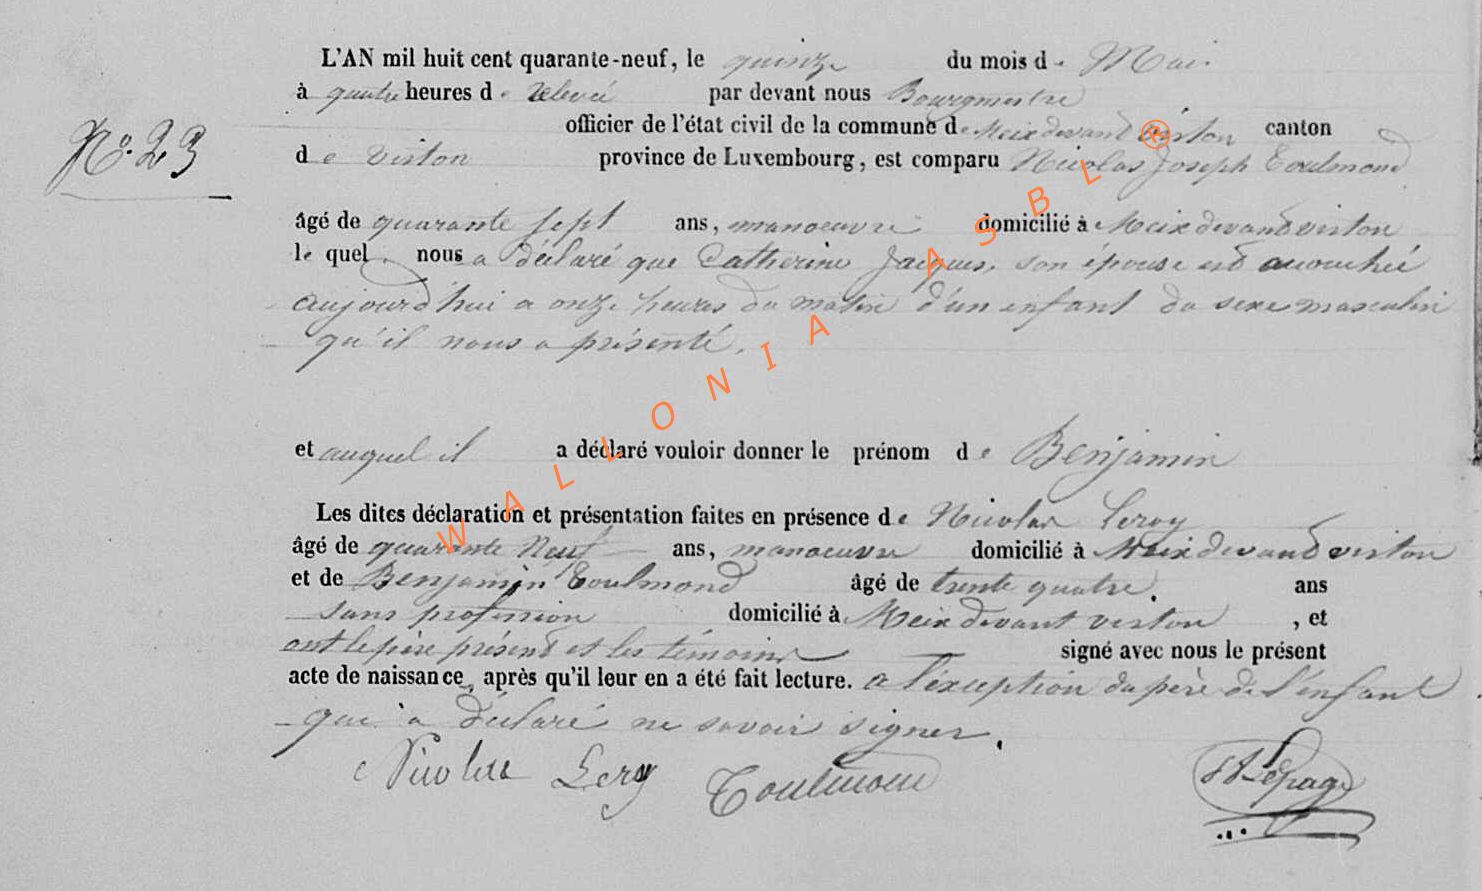 L'AN mil huit cent quarante-neuf, le quinze du mois de Mai.
à quatre heures de relevé par devant nous Bourgmestre
officier de l'état civil de la commune de Meix devant virton canton
N° 23
de Virton province de Luxembourg, est comparu Nicolas Joseph Toulmond
âgé de quarante sept ans, manoeuvre domicilié à Meix devant virton
le quel nous a déclaré que Catherine Jacques, son épouse est accouchée
aujourd'hui a onze heures du matin d'un enfant du sexe masculin
qu'il nous a présenté.
et auquel il a déclaré vouloir donner le prénom de Benjamin
Les dites déclaration et présentation faites en présence de Nicolas Leroy
âgé de quarante Neuf ans, manoeuvre domicilié à Meix devant virton
et de Benjamin Toulmond âgé de trente quatre. ans
sans profession domicilié à Meix devant virton, et
ont le père présent et les témoins signé avec nous le présent
acte de naissance, après qu'il leur en a été fait lecture. a l'exception du père de l'enfant
qui a déclaré ne savoir signer.
Nicolas Leroy Toulmond Lepage
WALLONIA ASBL ®